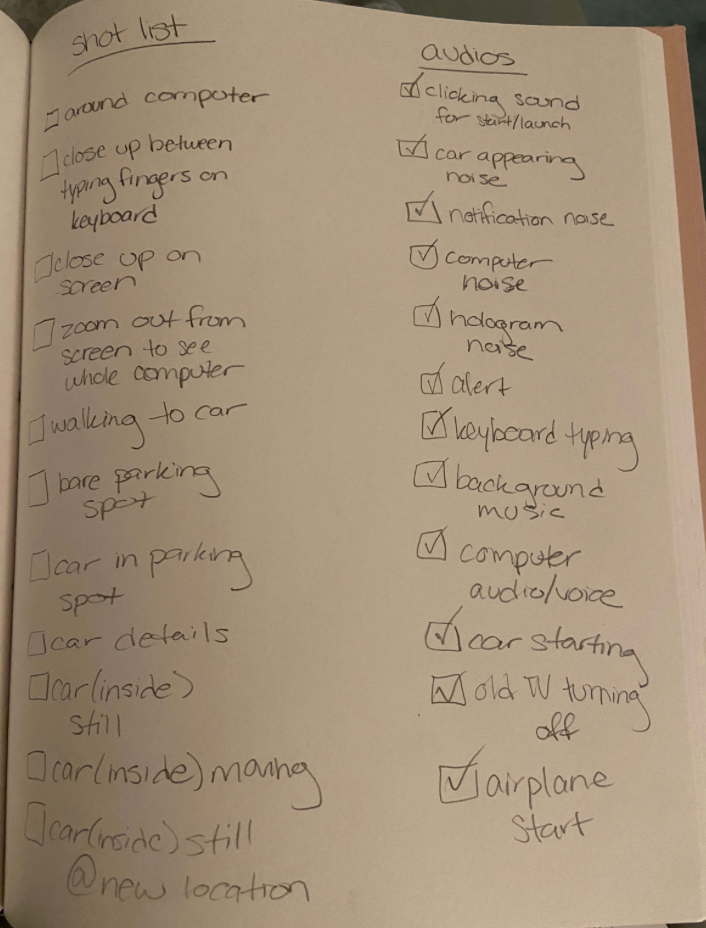 shot list
☐ around computer
☐ close up between
typing fingers on
keyboard
☐ close up on
screen
☐ zoom out from
screen to see
whole computer
☐ walking to car
☐ bare parking
spot
☐ car in parking
spot
☐ car details
☐ car(inside)
still
☐ car(inside) moving
☐ car(inside) still
@new location
audios
☑ clicking sound
for start/launch
☑ car appearing
noise
☑ notification noise
☑ computer
noise
☑ hologram
noise
☑ alert
☑ keyboard typing
☑ background
music
☑ computer
audio/voice
☑ car starting
☑ old TV turning
off
☑ airplane
start